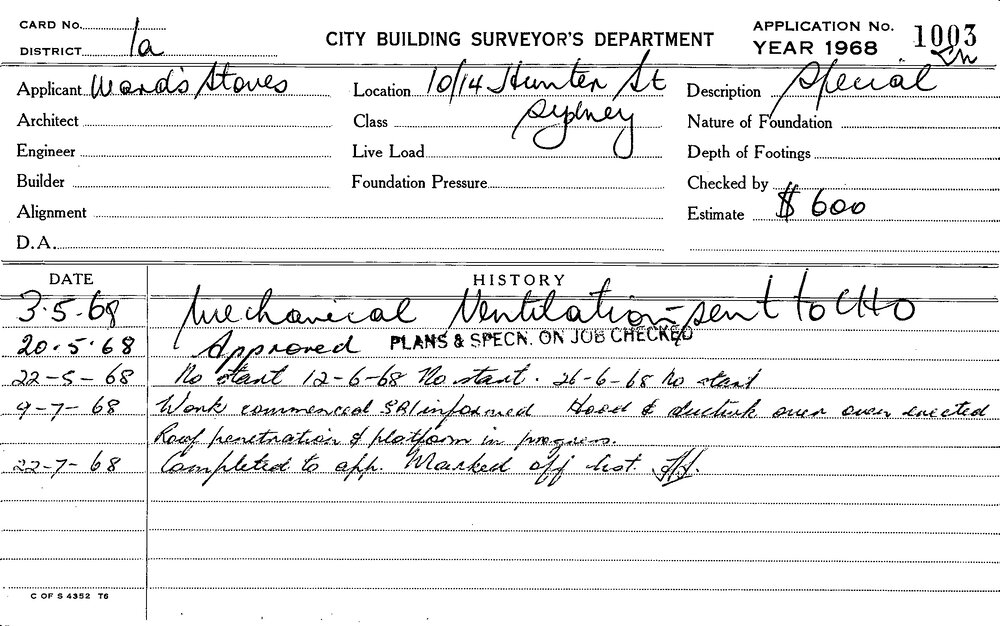 CARD No.
DISTRICT 1a
CITY BUILDING SURVEYOR'S DEPARTMENT
APPLICATION No. 1003
YEAR 1968
Applicant Ward's Stoves
Location 10/14 Hunter St
Sydney
Description Special
Architect
Class
Nature of Foundation
Engineer
Live Load
Depth of Footings
Builder
Foundation Pressure
Checked by
Alignment
Estimate $ 600
D.A.
DATE HISTORY
3.5.68 Mechanical Ventilation - sent to CHO
20.5.68 Approved PLANS & SPECN. ON JOB CHECKED
22-5-68 No start 12-6-68 No start. 26-6-68 No start
9-7-68 Work commenced SRI informed Hood & ductwk over oven erected
Roof penetration & platform in progress.
22-7-68 Completed to app. Marked off list.
C OF S 4352 T6